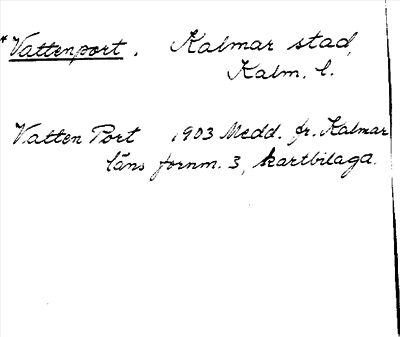 *Vattenport. Kalmar stad,
Kalm. l.
Vatten Port 1903 Medd. fr. Kalmar
läns fornm. 3, kartbilaga.